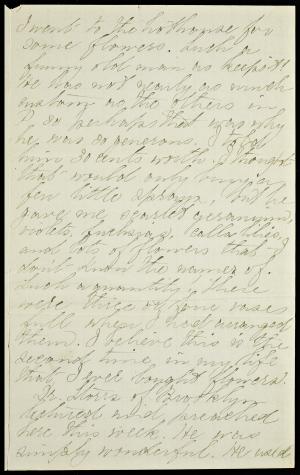 I went to the hothouse for
some flowers. Such a
funny old man as keeps it!
He has not nearly as much
custom as the others in
P. so perhaps that was why
he was so generous. I
him 50 cents worth. I thought
that would only buy a
few little sprays, but he
gave me scarlet geranium,
violets, fuchsias, calla lilies,
and lots of flowers that I
don't know the names of.
Such a quantity! There
were three or four vases
full when I had arranged
them. I believe this is the
second time in my life
that I ever bought flowers.
Dr. Storrs of Brooklyn
lectured and preached
here this week. He was
simply wonderful. He used